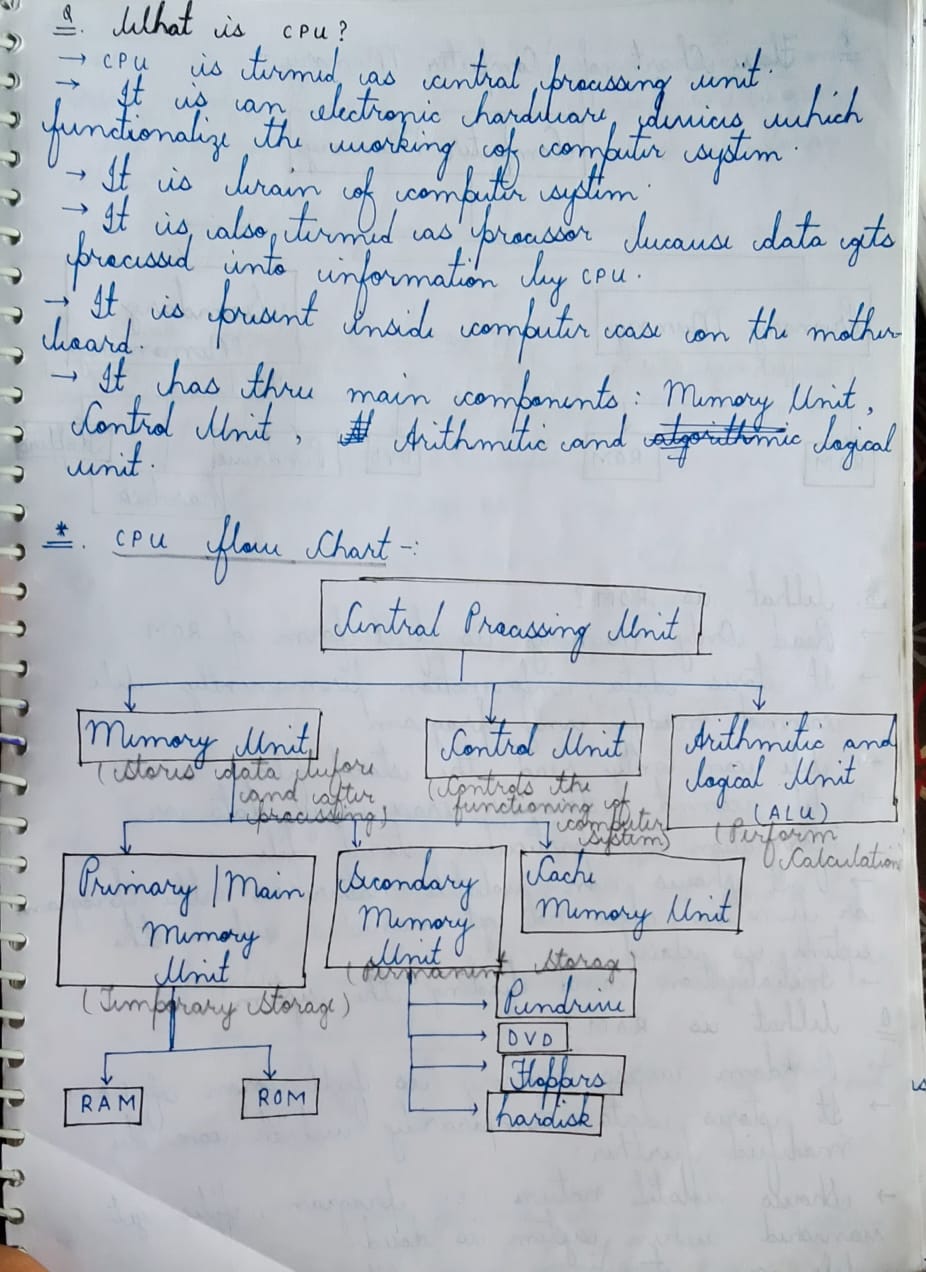 Q. What is CPU?
→ CPU is termed as central processing unit.
→ It is an electronic hardware devices which
functionalize the working of computer system.
→ It is brain of computer system.
→ It is also termed as processor because data gets
processed into information by CPU.
→ It is present inside computer case on the mother-
board.
→ It has three main components: Memory Unit,
Control Unit, Arithmetic and logical
unit.
*. CPU flow Chart -:
Central Processing Unit
Memory Unit
(stores data before
and after
processing)
Control Unit
(Controls the
functioning of
computer
system)
Arithmetic and
logical Unit
(ALU)
(Perform
Calculation
Primary / Main
Memory
Unit
(Temporary Storage)
Secondary
Memory
Unit
(Permanent Storage)
Cache
Memory Unit
RAM
ROM
Pendrive
DVD
Floppars
hardisk